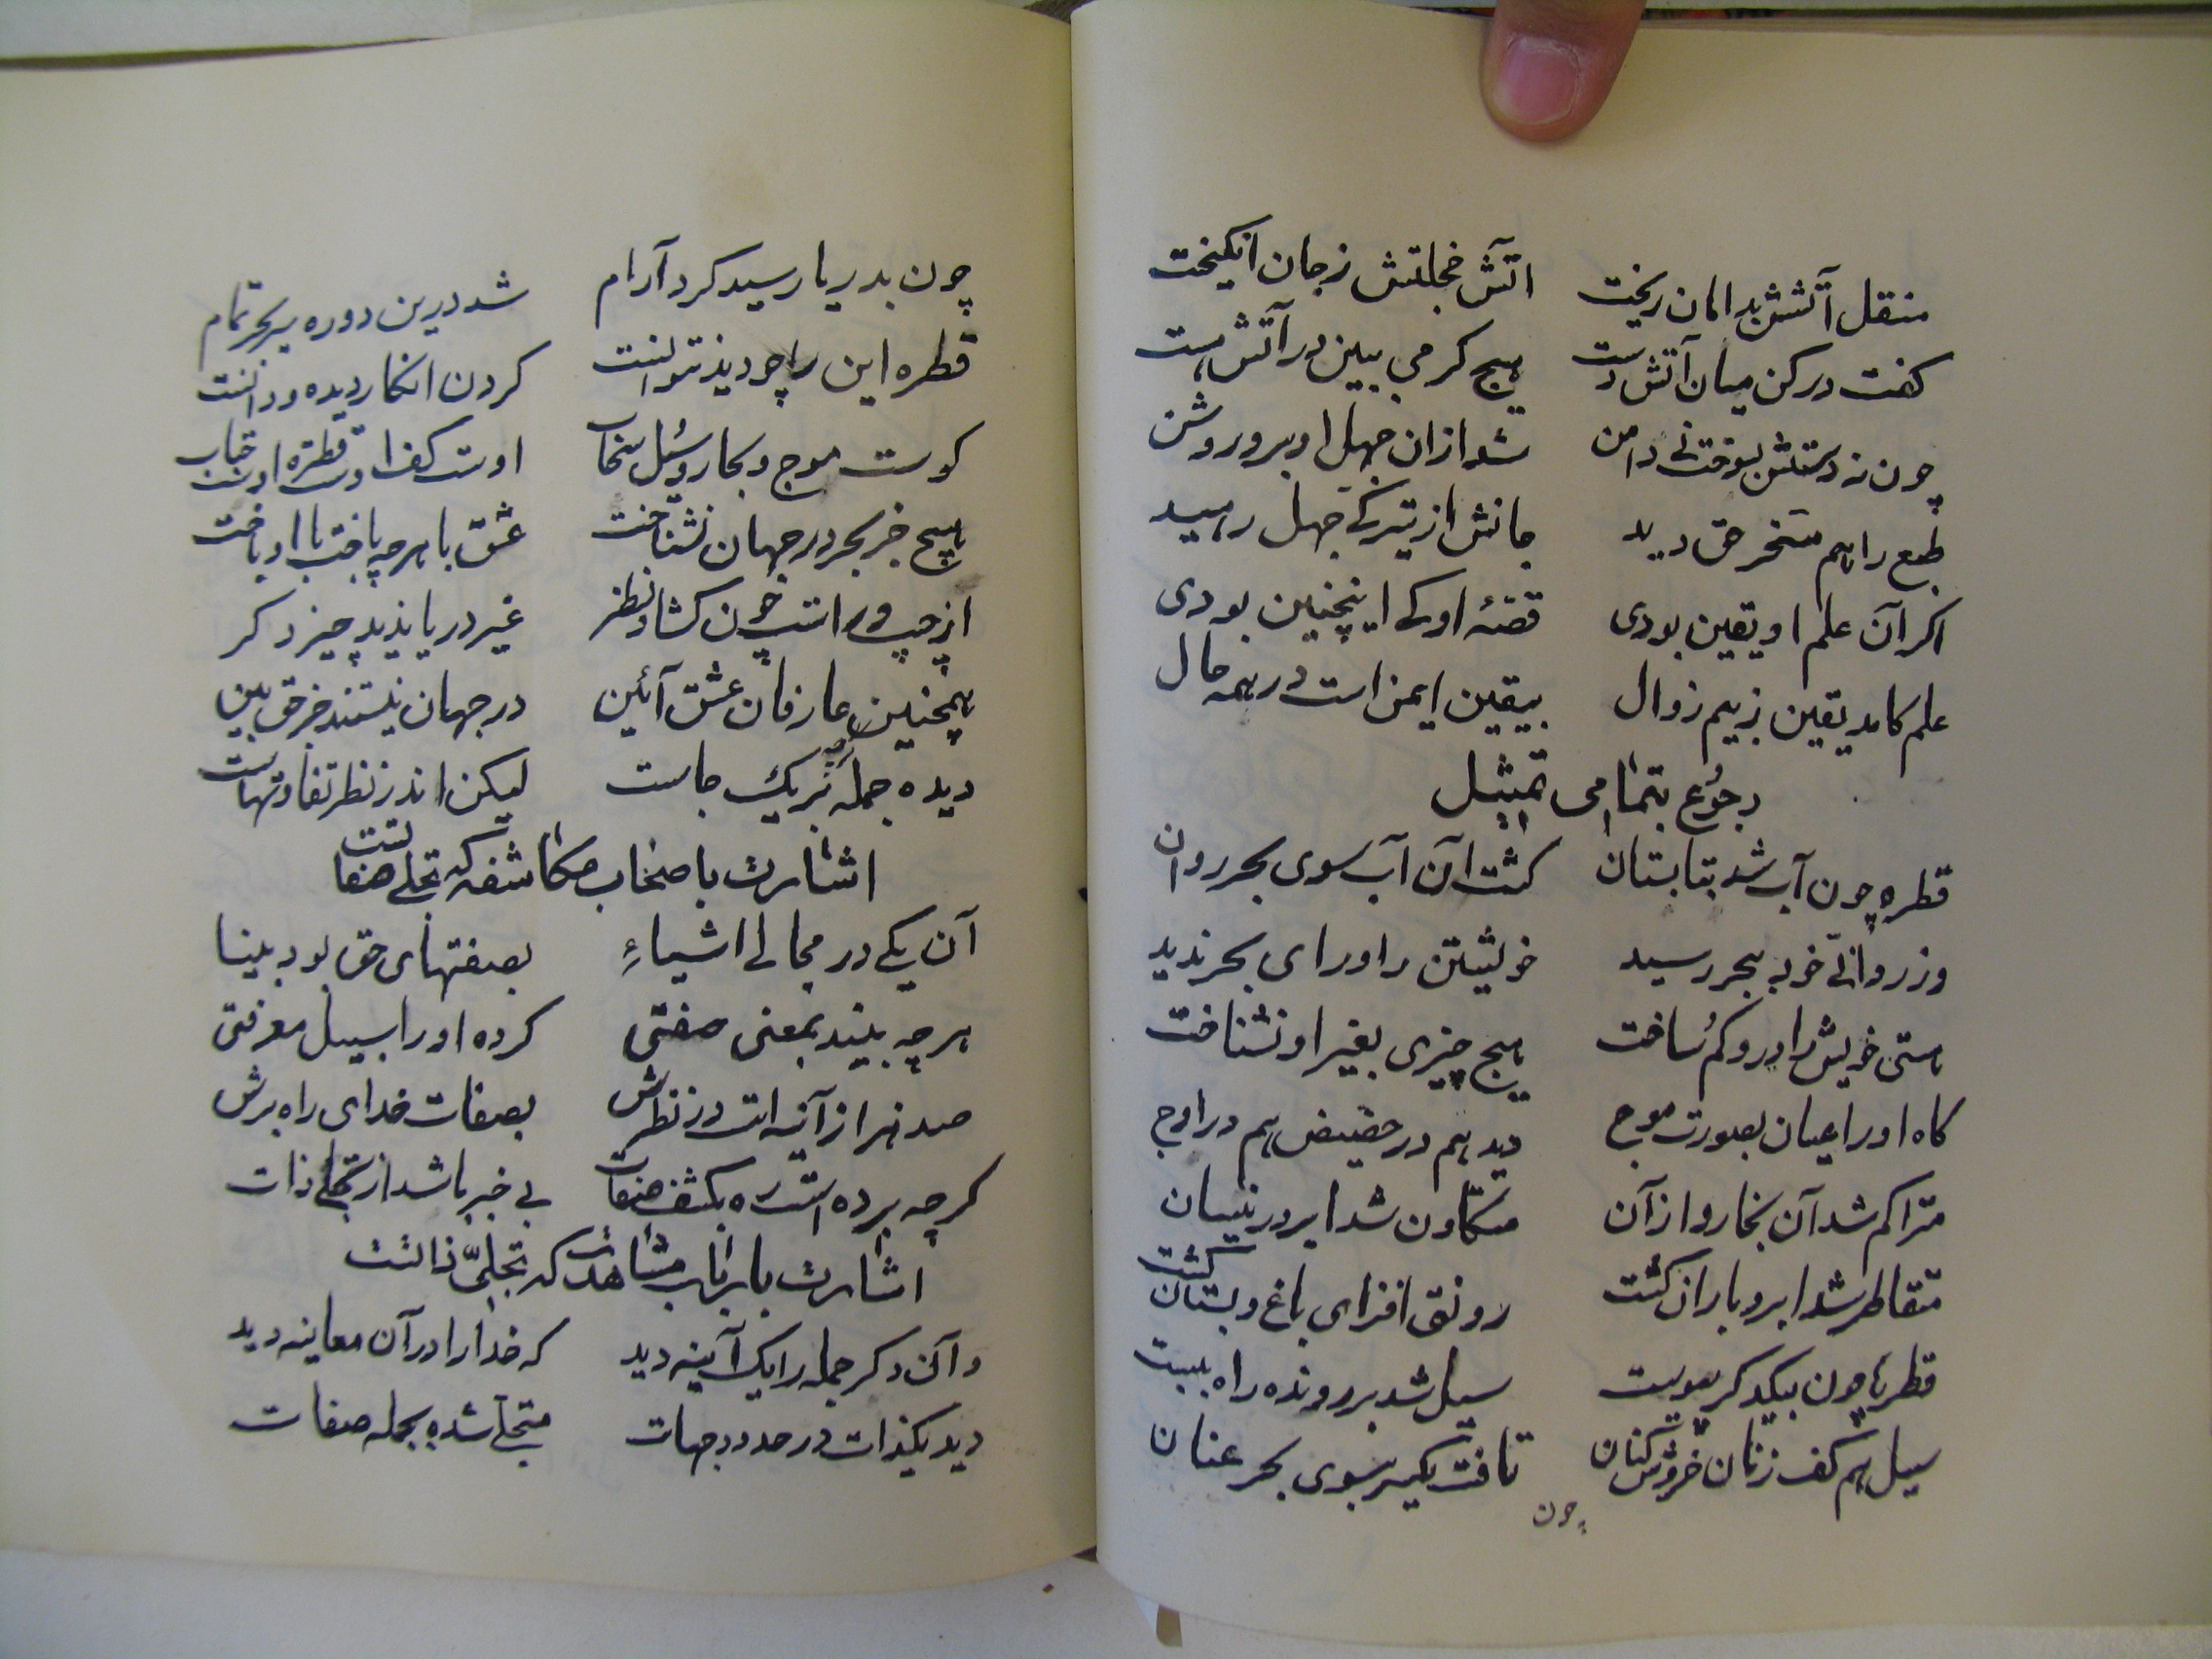 منقل آتشش بدامان ریخت اتش خجلتش زجان انکیخت
کفت درکن میان آتش دست هیچ کرمی ببین در آتش هست
چون نه دستش بسوخت نی دامن شد ازان جهل او برو روشن
طبع را هم مسخر حق دید جانش از تیرکی جهل رهید
اکر آن علم او یقین بودی قصهٔ او کی اینچنین بودی
علم کامد یقین زبیم زوال بیقین ایمن است در همه حال
رجوع بتمامی تمثیل
قطره چون آب شد بتابستان کشت آن آب سوی بحر روان
وز روانی خود ببحر رسید خویشتن را ورای بحر ندید
هستی خویش را درو کم ساخت هیچ چیزی بغیر او نشناخت
کاه او را عیان بصورت موج دید هم در حضیض هم در اوج
متراکم شد آن بخار و ازآن متکاون شد ابر در نیسان
متقاطر شد ابر و باران کشت رونق افزای باغ و بستان کشت
قطرها چون بیکدکر پیوست سیل شد بر رونده راه ببست
سیل هم کف زنان خروش کنان تافت یکسر بسوی بحر عنان
چون
چون بدریا رسید کرد آرام شد درین دوره سیر بحر تمام
قطره این را چو دید نتوانست کردن انکار دیده و دانست
کوست موج و بخار و سیل سحاب اوست کف اوست قطره اوست حباب
هیچ جز بحر در جهان نشناخت عشق با هرچه باخت با او باخت
از چپ و راست چون کشاد نظر غیر دریا ندید چیز دکر
همچنین عارفان عشق آئین در جهان نیستند جز حق بین
دیده جمله بر یک جاست لیکن اندر نظر تفاوتهاست
اشارت باصحاب مکاشفه که تجلی صفاتست
آن یکی در مجالی اشیاءِ بصفتهای حق بود بینا
هرچه بیند بمعنی صفتی کرده او را سبیل معرفتی
صد هزار آئنه است در نظرش بصفات خدای راه برش
کرچه برده است ره بکشف صفات بی خبر باشد از تجلی ذات
اشارت بارباب مشاهدت که تجلیّ ذاتست
وآن دکر جمله را یک آیینه دید که خدا را در آن معاینه دید
دید یکذات در حدود جهات متجلی شده بجمله صفات